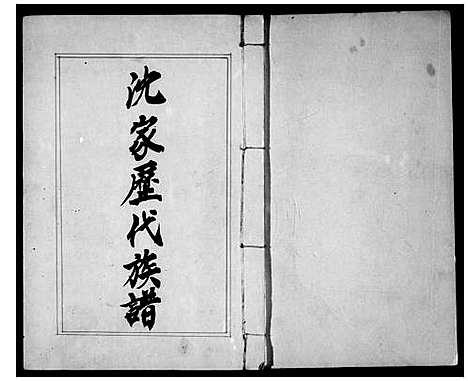 沈家歷代族譜